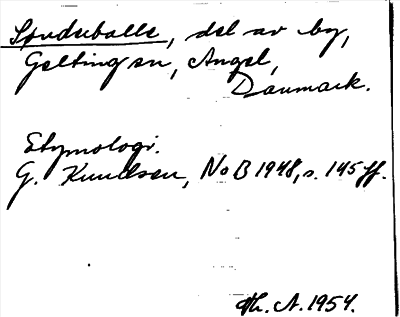 Sønderballe, del av by,
Gelting sn, Angel,
Danmark.
Etymologi.
G. Knudsen, NoB 1948, s. 145 ff.
Th. A. 1954.